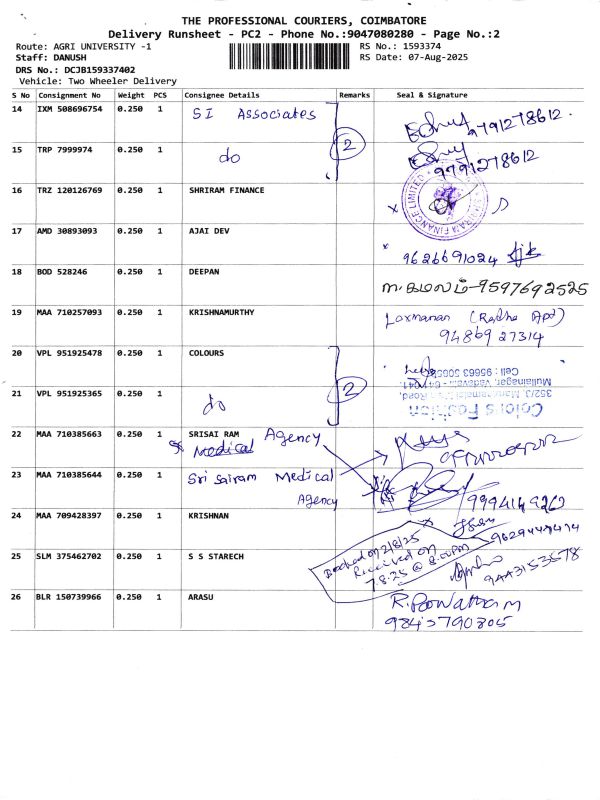 THE PROFESSIONAL COURIERS, COIMBATORE
Delivery Runsheet - PC2 - Phone No.:9047080280 - Page No.:2
Route: AGRI UNIVERSITY -1 RS No.: 1593374
Staff: DANUSH RS Date: 07-Aug-2025
DRS No.: DCJB159337402
Vehicle: Two Wheeler Delivery
S No Consignment No Weight PCS Consignee Details Remarks Seal & Signature
14 IXM 508696754 0.250 1 SI Associates 9791278612.
15 TRP 7999974 0.250 1 do 2 9791278612
16 TRZ 120126769 0.250 1 SHRIRAM FINANCE
17 AMD 30893093 0.250 1 AJAI DEV 9626691024
18 BOD 528246 0.250 1 DEEPAN ந.கமலம்-9597692525
19 MAA 710257093 0.250 1 KRISHNAMURTHY Laxmanan (Radha Apt)
9486927314
20 VPL 951925478 0.250 1 COLOURS
21 VPL 951925365 0.250 1 do 2
Colors Fashion
22 MAA 710385663 0.250 1 SRISAI RAM Agency
Medical
23 MAA 710385644 0.250 1 Sri Sairam Medical
Agency
24 MAA 709428397 0.250 1 KRISHNAN
Booked on 2/8/25
Received on
7.8.25 @ 8.00PM
25 SLM 375462702 0.250 1 S S STARECH
26 BLR 150739966 0.250 1 ARASU